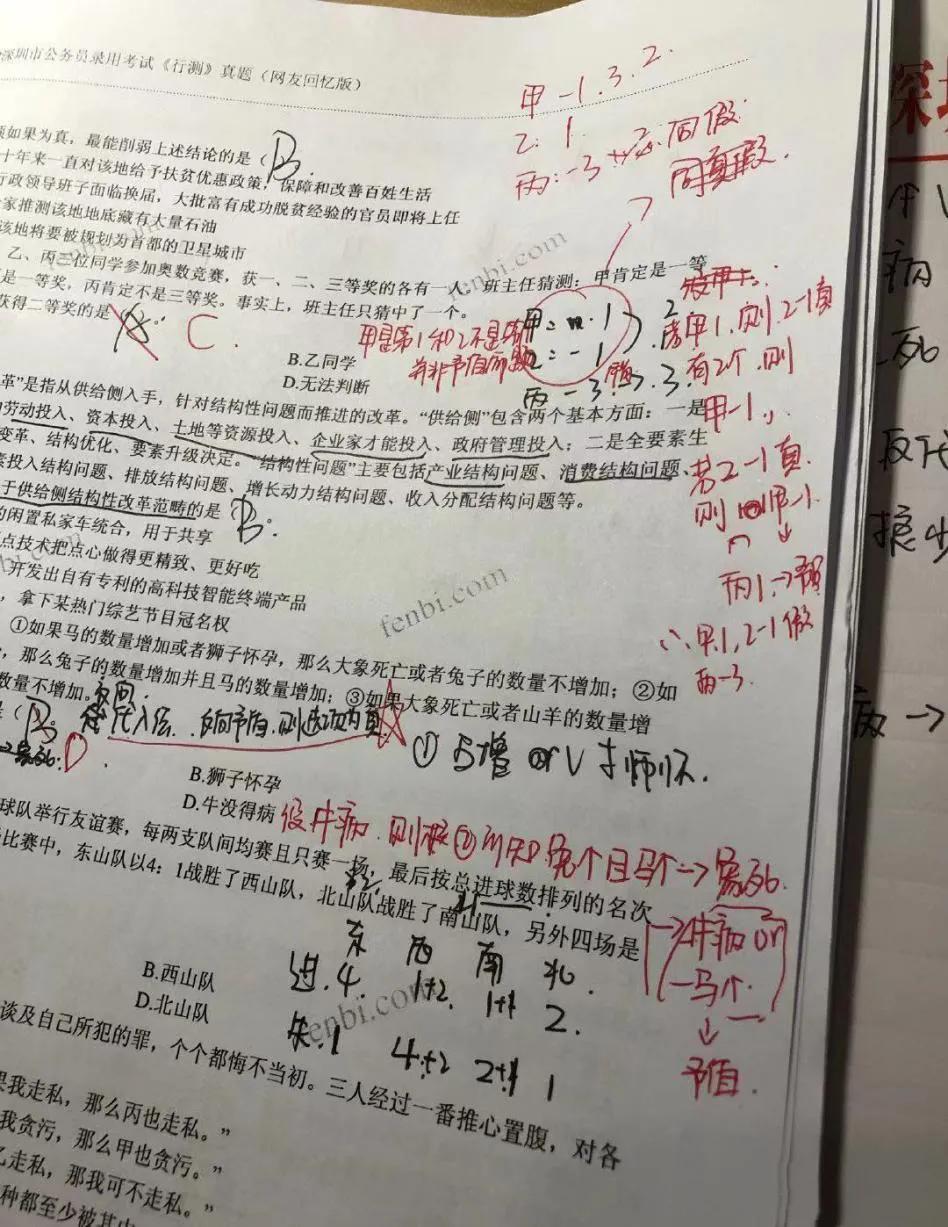 深圳市公务员录用考试《行测》真题（网友回忆版）
甲-1.3.2.
乙. 1.
丙:-3
同假.
同真假.
项如果为真，最能削弱上述结论的是（
B.
十年来一直对该地给予扶贫优惠政策，保障和改善百姓生活
行政领导班子面临换届，大批富有成功脱贫经验的官员即将上任
家推测该地地底藏有大量石油
该地将要被规划为首都的卫星城市
乙、丙三位同学参加奥数竞赛，获一、二、三等奖的各有一人，班主任猜测：甲肯定是一等
是一等奖，丙肯定不是三等奖。事实上，班主任只猜中了一个。
获得二等奖的是
C.
B.乙同学
D.无法判断
甲1,则.2-1真
有2个.则
甲-1,
若2-1真
则
丙1.→
∴甲1,2-1假
丙-3.
革”是指从供给侧入手，针对结构性问题而推进的改革。“供给侧”包含两个基本方面：一是
劳动投入、资本投入、土地等资源投入、企业家才能投入、政府管理投入；二是全要素生
变革、结构优化、要素升级决定。“结构性问题”主要包括产业结构问题、消费结构问题、
素投入结构问题、排放结构问题、增长动力结构问题、收入分配结构问题等。
于供给侧结构性改革范畴的是（
B.
的闲置私家车统合，用于共享
点技术把点心做得更精致、更好吃
开发出自有专利的高科技智能终端产品
，拿下某热门综艺节目冠名权
①如果马的数量增加或者狮子怀孕，那么大象死亡或者兔子的数量不增加；②如
，那么兔子的数量增加并且马的数量增加；③如果大象死亡或者山羊的数量增
数量不增加。
是（
B.
代入法.反向矛盾.则选项为真
①马增 or 狮怀.
B.狮子怀孕
D.牛没得病
设牛病.则根②所知.兔个且马个→象死.
→牛病 or
-马个.
↓
矛盾.
球队举行友谊赛，每两支队间均赛且只赛一场，最后按总进球数排列的名次
比赛中，东山队以4：1战胜了西山队，北山队战胜了南山队，另外四场是
东 西 南 北.
进.4 1+2. 1+1 2.
失.1 4+2 2+1 1
B.西山队
D.北山队
谈及自己所犯的罪，个个都悔不当初。三人经过一番推心置腹，对各
果我走私，那么丙也走私。”
我贪污，那么甲也贪污。”
乙走私，那我可不走私。”
种都至少被其中
fenbi.com
fenbi.com
fenbi.com
fenbi.com
fenbi.com